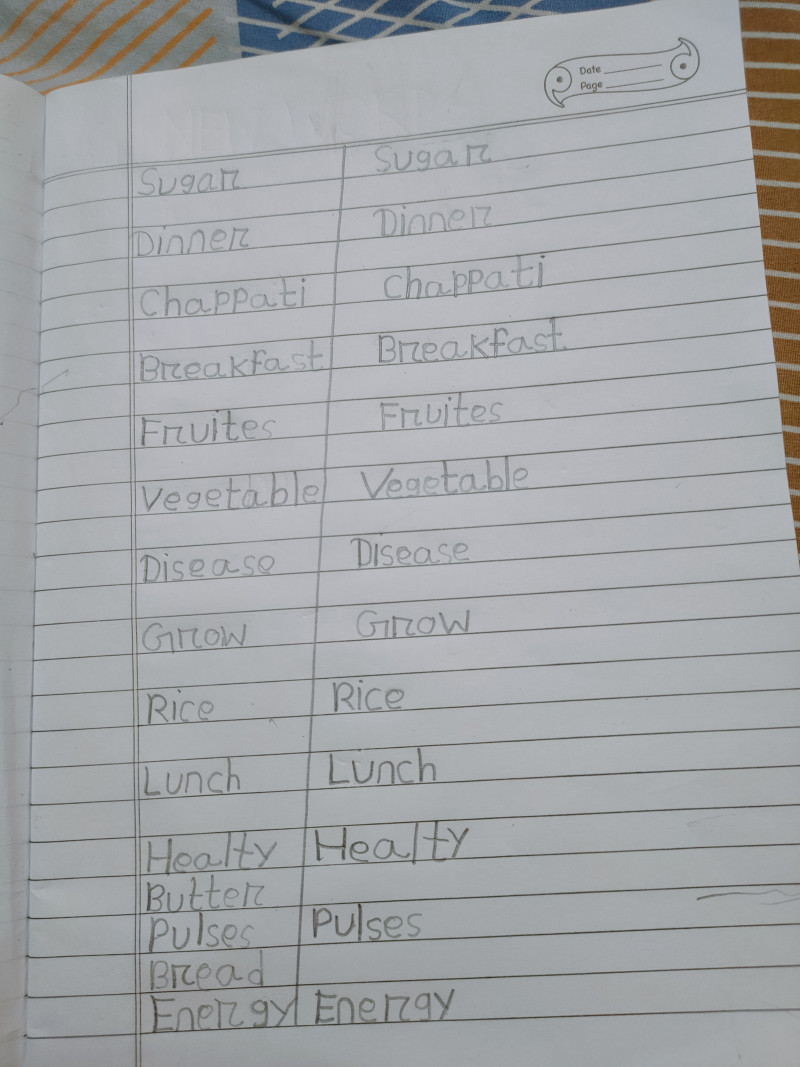 Date
Page
Sugar Sugar
Dinner Dinner
Chappati Chappati
Breakfast Breakfast
Fruites Fruites
Vegetable Vegetable
Disease Disease
Grow Grow
Rice Rice
Lunch Lunch
Healty Healty
Butter
Pulses Pulses
Bread
Energy Energy